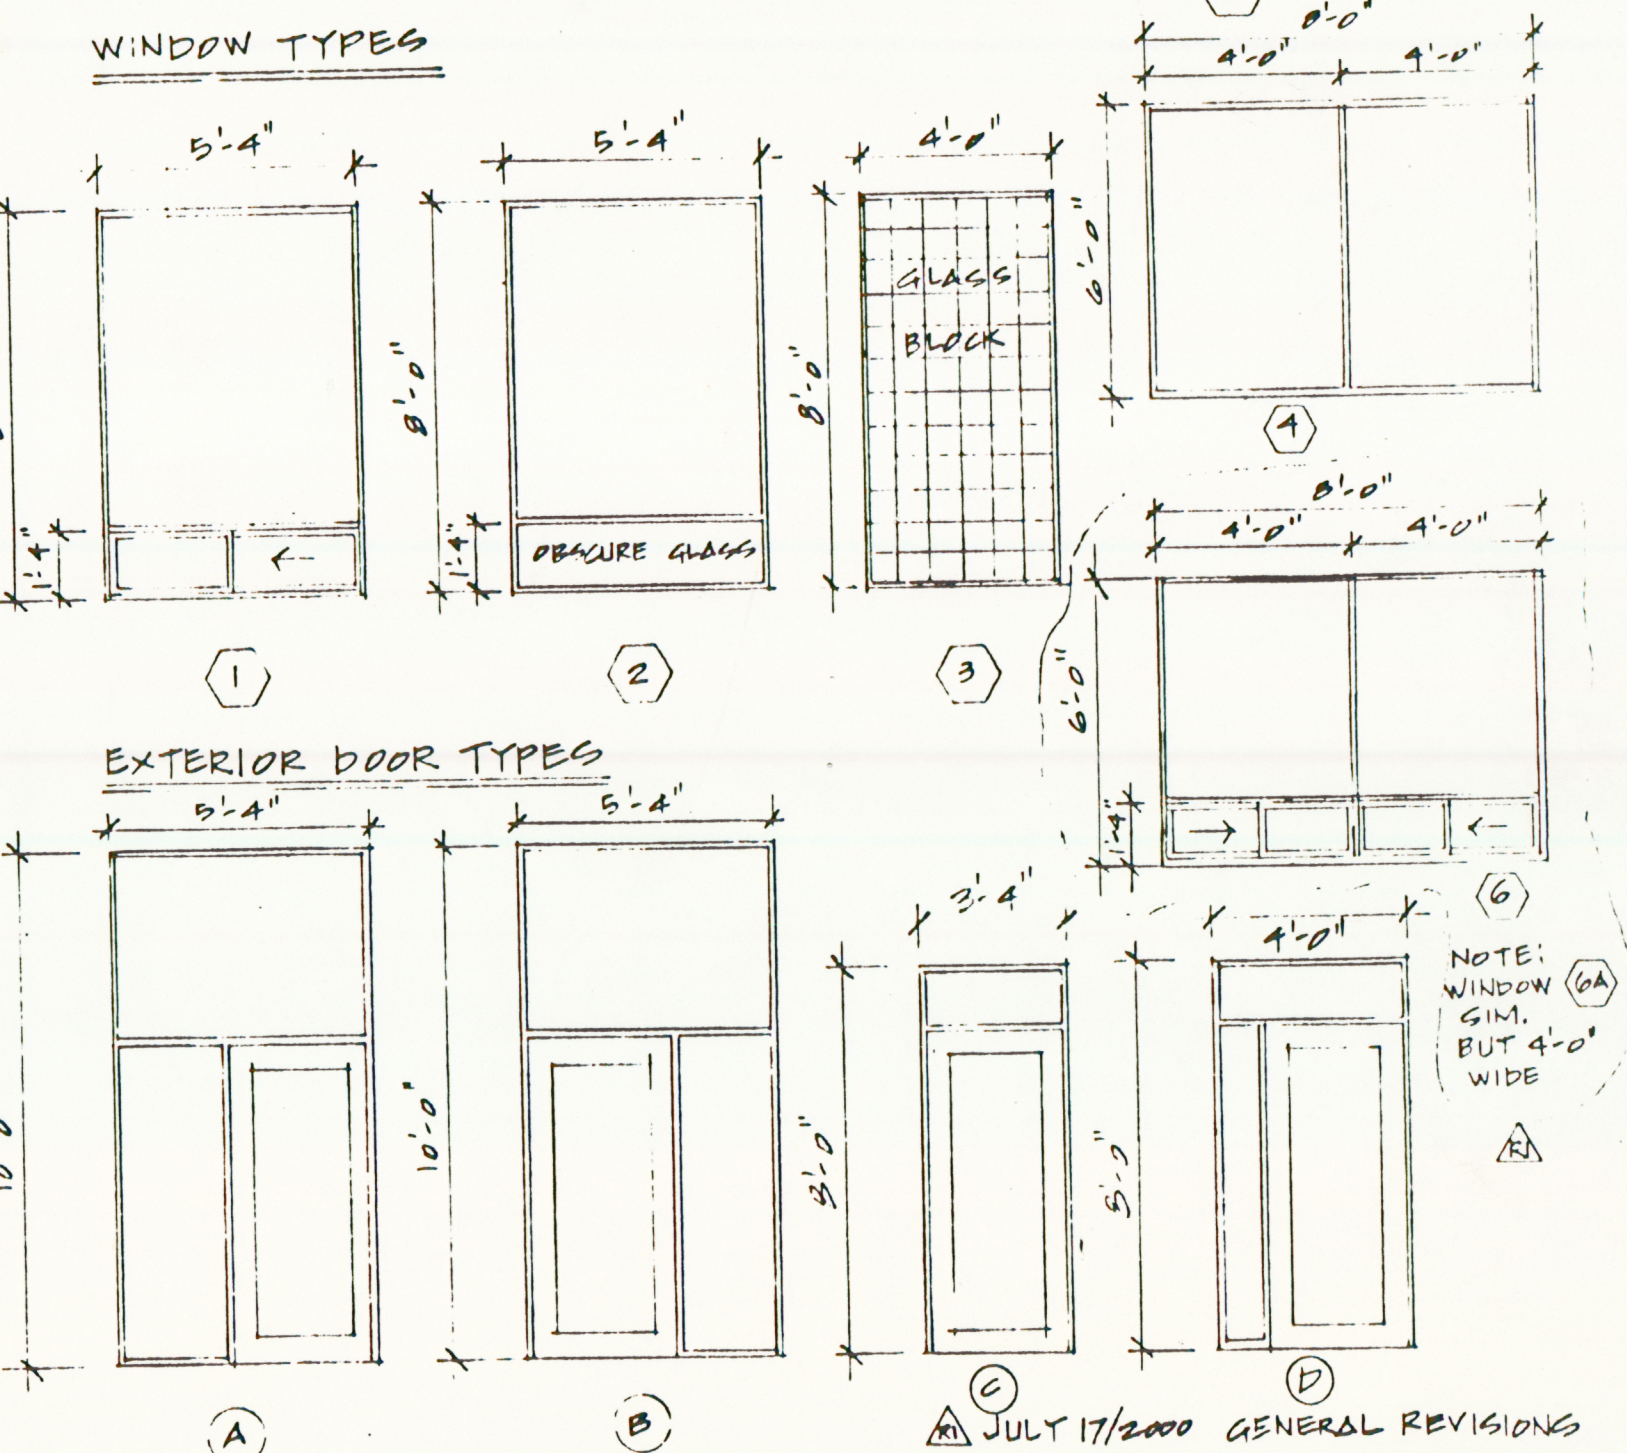 WINDOW TYPES
5'-4"
1'-4"
1
5'-4"
8'-0"
1'-4"
OBSCURE GLASS
2
4'-0"
8'-0"
GLASS
BLOCK
3
8'-0"
4'-0" 4'-0"
6'-0"
4
8'-0"
4'-0" 4'-0"
6'-0"
1'-4"
6
NOTE:
WINDOW 6A
SIM.
BUT 4'-0"
WIDE
R1
EXTERIOR DOOR TYPES
5'-4"
A
5'-4"
10'-0"
B
3'-4"
8'-0"
C
4'-0"
8'-0"
D
R1 JULY 17/2000 GENERAL REVISIONS